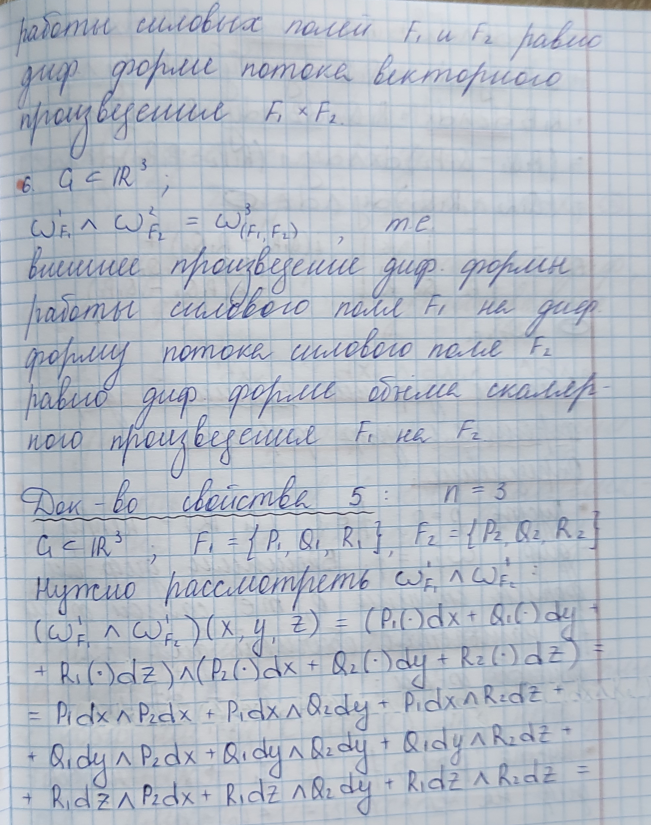 работы силовых полей F₁ и F₂ равно
диф форме потока векторного
произведения F₁ × F₂.
6. G ⊂ ℝ³ ;
ω¹_F₁ ∧ ω²_F₂ = ω³_(F₁, F₂) , т.е.
внешнее произведение диф. формы
работы силового поля F₁ на диф.
форму потока силового поля F₂
равно диф. форме объёма скаляр-
ного произведения F₁ на F₂
Док-во свойства 5 : n = 3
G ⊂ ℝ³ ; F₁ = {P₁, Q₁, R₁}, F₂ = {P₂, Q₂, R₂}
Нужно рассмотреть ω¹_F₁ ∧ ω¹_F₂ :
(ω¹_F₁ ∧ ω¹_F₂)(x, y, z) = (P₁(·)dx + Q₁(·)dy +
+ R₁(·)dz) ∧ (P₂(·)dx + Q₂(·)dy + R₂(·)dz) =
= P₁dx ∧ P₂dx + P₁dx ∧ Q₂dy + P₁dx ∧ R₂dz +
+ Q₁dy ∧ P₂dx + Q₁dy ∧ Q₂dy + Q₁dy ∧ R₂dz +
+ R₁dz ∧ P₂dx + R₁dz ∧ Q₂dy + R₁dz ∧ R₂dz =